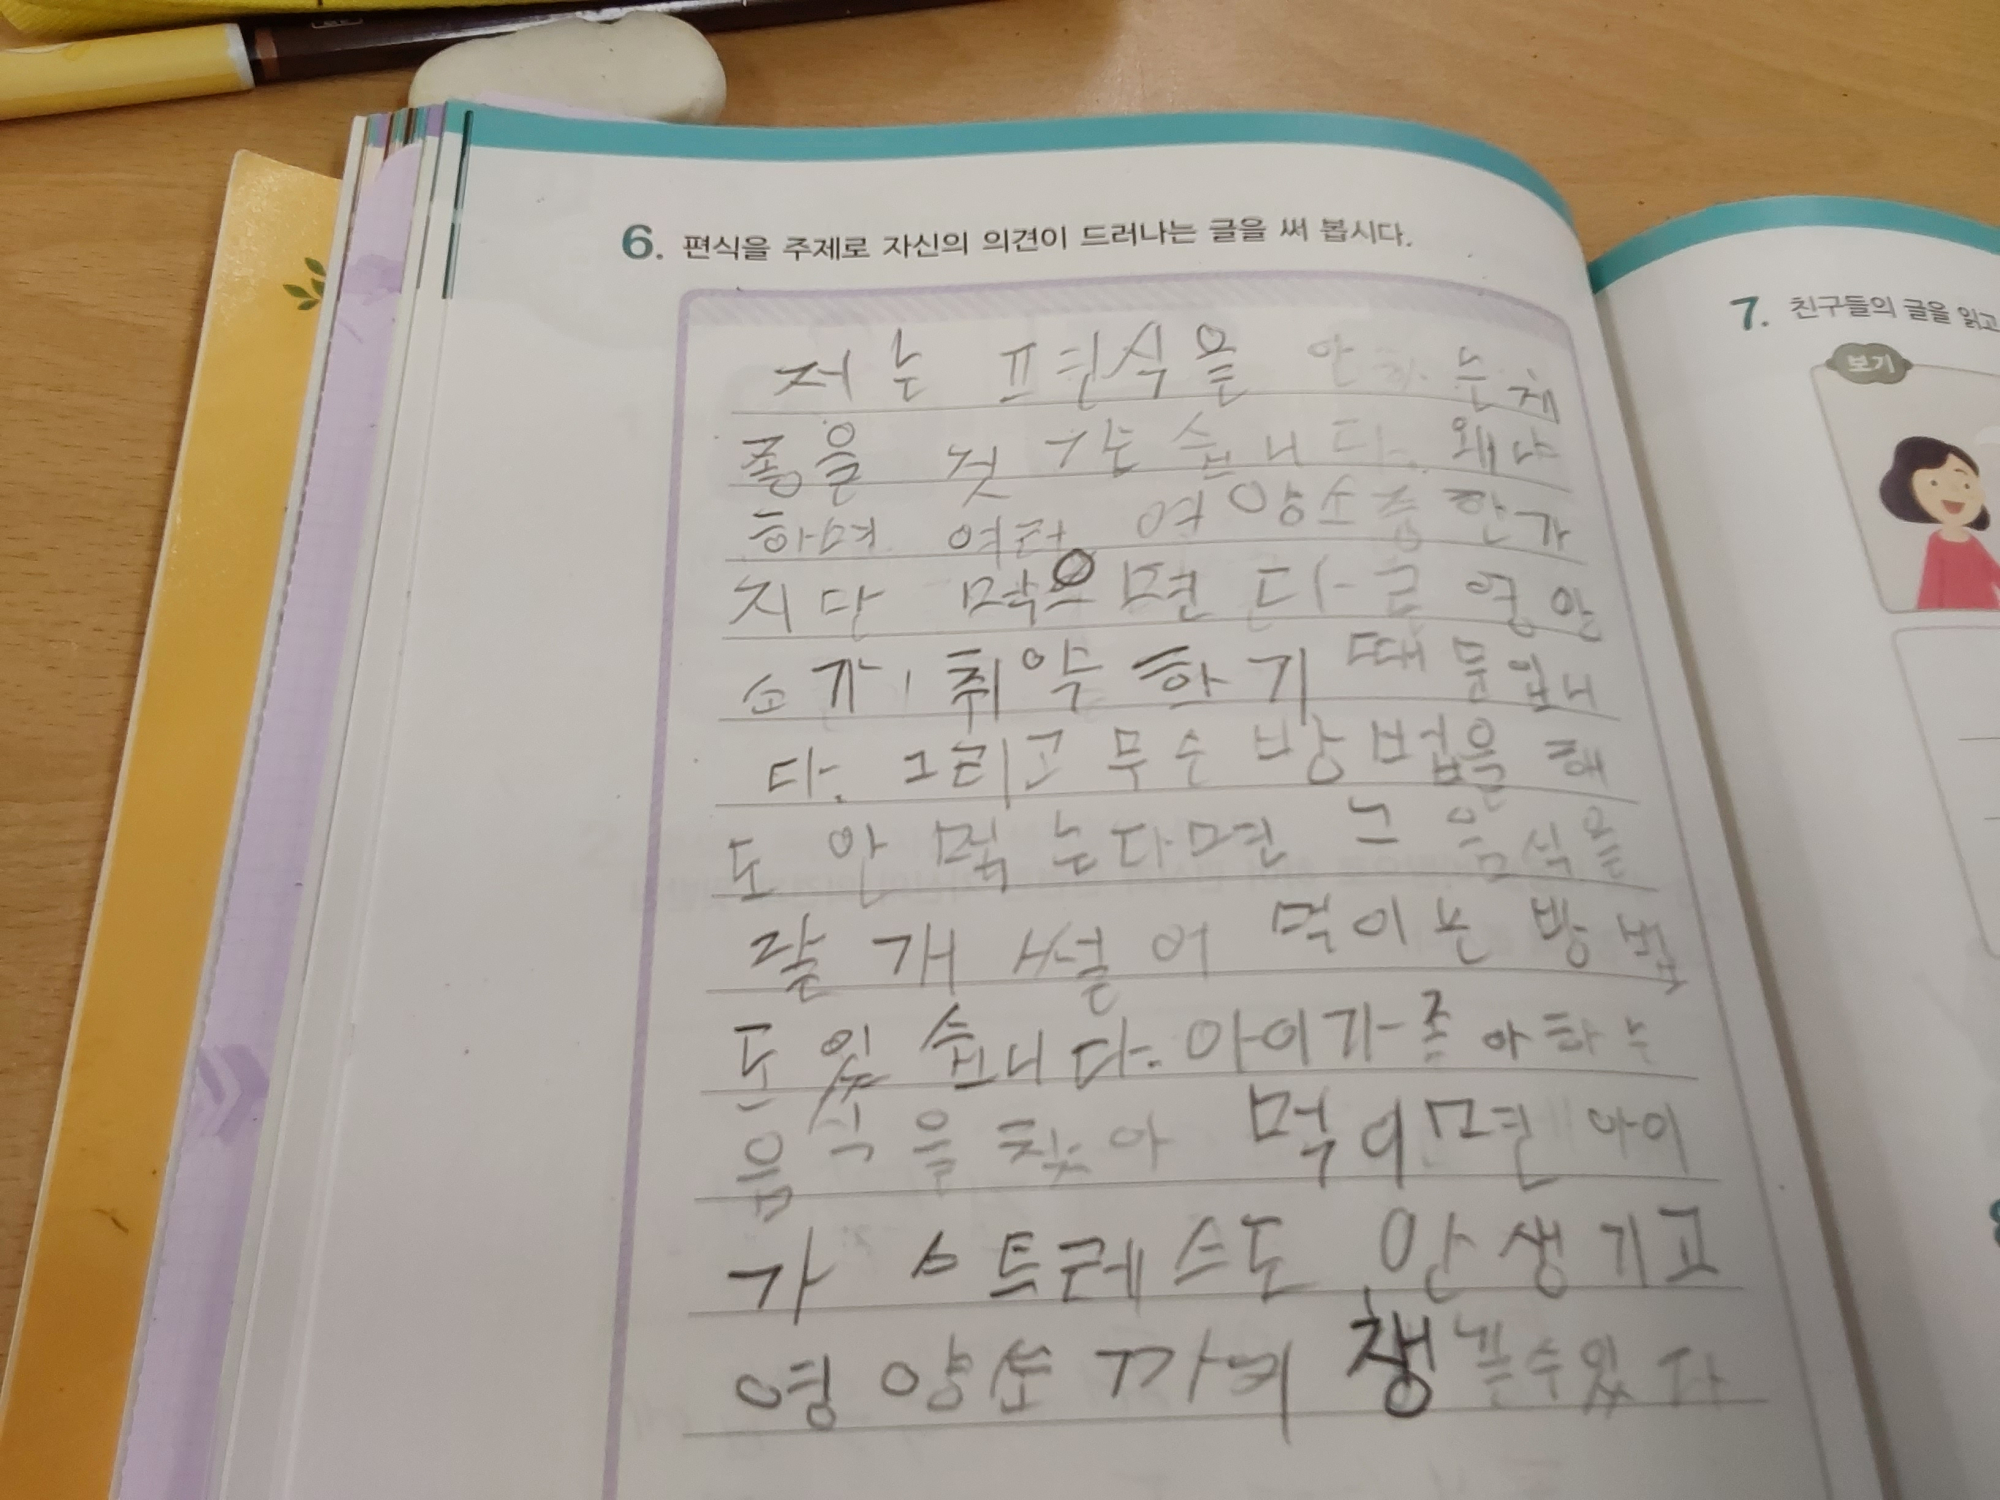 6. 편식을 주제로 자신의 의견이 드러나는 글을 써 봅시다.
저는 편식을 안 하는 채
좋을 것 같습니다. 왜냐
하며 여러 영양소 중 한가
지만 먹으면 다른 영양
소가 취약하기 때문입니
다. 그리고 무슨 방법을 해
도 안 먹는다면 그 음식을
잘개 썰어 먹이는 방법
도 있습니다. 아이가 좋아하는
음식을 찾아 먹이면 아이
가 스트레스도 안 생기고
영양소 까지 챙길수있다
7. 친구들의 글을 읽고
보기